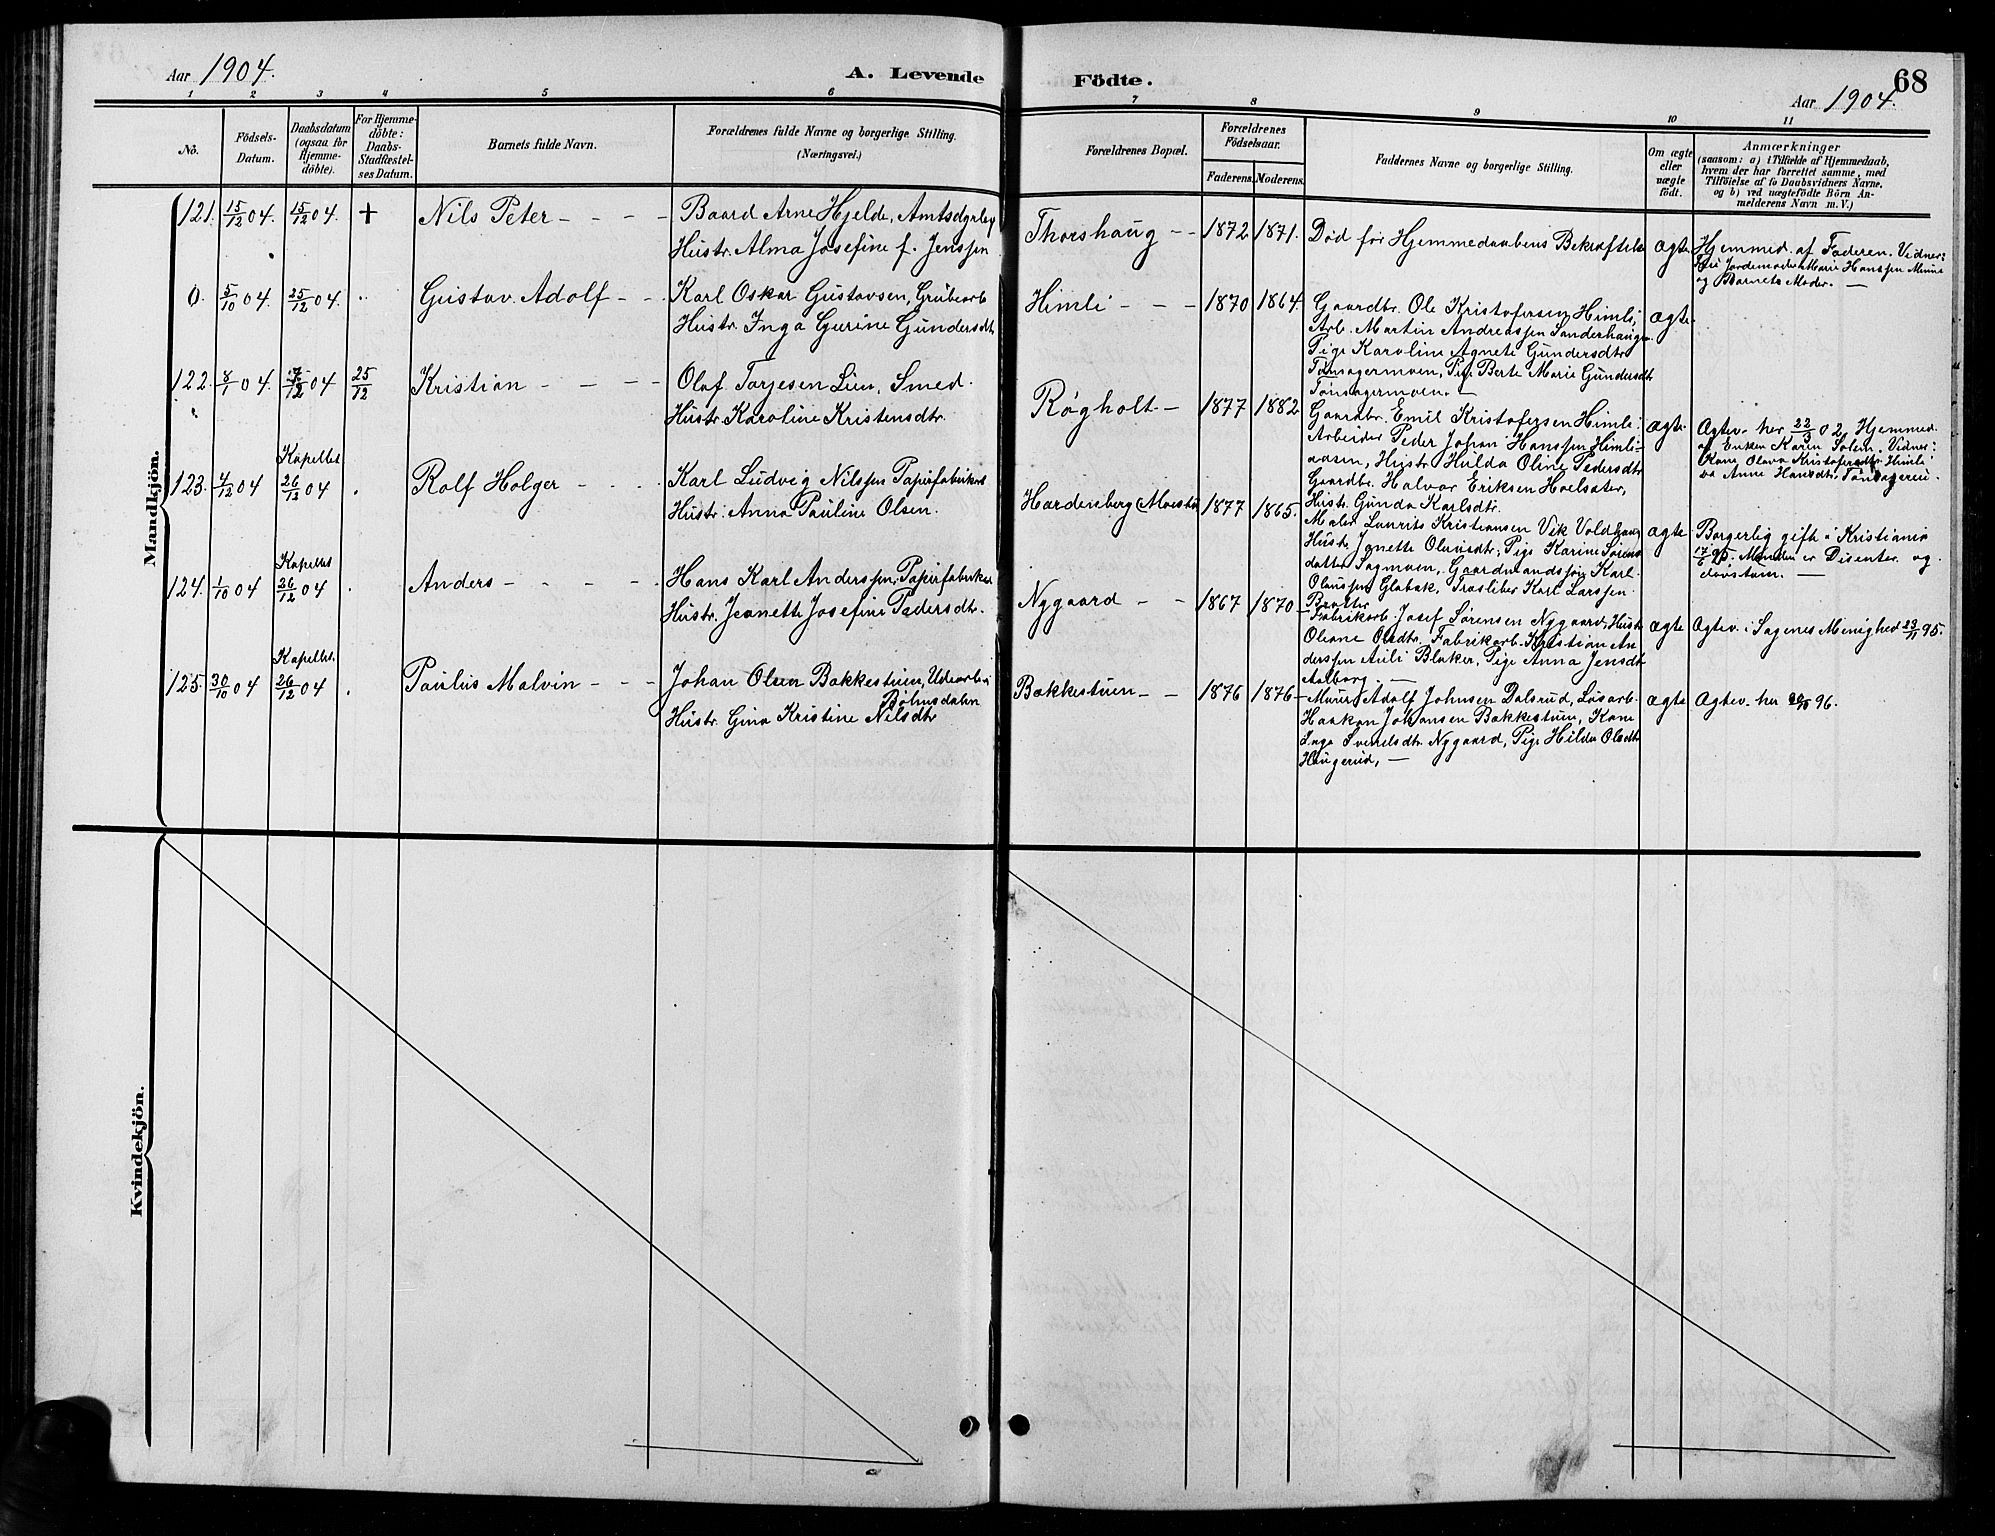 Aar 1904.
A. Levende
1 2 3 4 5 6
No.
Födsels-
Datum.
Daabsdatum
(ogsaa for
Hjemme-
døbte).
For Hjemme-
døbte:
Daabs-
Stadfæstel-
ses Datum.
Barnets fulde Navn.
Forældrenes fulde Navne og borgerlige Stilling.
(Næringsvei.)
Mandkjön.
121. 15/12 04. 15/12 04. + Nils Peter - - - - Baard Arne Hjelde, Amtsdyrlæg
Hustr. Alma Josefine f. Jenssen
0. 5/10 04. 25/12 04. Gustav Adolf - - Karl Oskar Gustavsen, Grubearb
Hustr. Inga Gurine Gundersdtr
122. 8/1 04. 04 25/12 Kristian - - - - Olaf Torjesen Lien, Smed.
Hustr. Karoline Kristensdtr.
Kapellet
123. 4/12 04 26/12 04 Rolf Holger - - - Karl Ludvig Nilssen Papirfabrikarb
Hustr. Anna Pauline Olsen.
Kapellet
124. 1/10 04 26/12 04 Anders - - - - Hans Karl Anderssen, Papirfabrikar
Hustr. Jeanette Josefine Pedersdtr.
Kapellet.
125. 30/10 04 26/12 04 Paulus Malvin - - - Johan Olsen Bakkestuen, Udearb. i
Bøhnsdalen
Hustr. Gina Kristine Nilsdtr
Kvindekjön.
Födte.
68
Aar 1904.
7 8 9 10 11
Forældrenes Bopæl.
Forældrenes
Födselsaar.
Faderens. Moderens.
Faddernes Navne og borgerlige Stilling.
Om ægte
eller
uægte
födt.
Anmærkninger
(saasom: a) i Tilfælde af Hjemmedaab,
hvem der har forrettet samme, med
Tilföielse af to Daabsvidners Navne,
og b) ved uægtefödte Börn An-
melderens Navn m. V.)
Thorshaug - - 1872 1871. Død før Hjemmedaabens Bekræftelse ægte Hjemmed. af Faderen. Vidner:
Jordemoder Marie Hanssen
og Barnets Moder. —
Himli - - - 1870 1864. Gaardbr. Ole Kristofersen Himli, ægte
Arb. Martin Andreassen Sanderhaugen
Pige Karoline Agnete Gundersdtr
Tønsagermoen, Pige Berte Marie Gundersdtr
Tønsagermoen. —
Røgholt - 1877 1882 Gaardbr. Emil Kristofersen Himli, ægte Ægtev. her 22/3 02. Hjemmed.
Arbeider Peder Johan Hanssen Himli-
aasen, Hustr. Hulda Oline Pedersdtr
Gaardbr. Halvor Eriksen Hoelsæter,
Hustr. Gunda Karlsdtr.
af Enken Karen Solem. Vidner:
Kone Olava Kristofersdtr. Himli
og Anne Hansdtr. Tønsagereie.
Hardenberg (Moestu 1877 1865. Maler Laurits Kristiansen Vik Voldhaug ægte Borgerlig gift i Kristiania
Hustr. Janette Olausdtr, Pige Karine Sørens
datter Sagmoen, Gaardmandssøn Karl
Olaussen Glabak, Træsliber Karl Larssen
Bratter
17/6 95. Manden er Disenter og
—
Nygaard - - 1867 1870 Fabrikarb. Josef Sørensen Nygaard, Hustr. ægte Ægtev. i Sagenes Menighed 23/11 95.
Oleane Olsdtr, Fabrikarb. Kristian An
derssen Auli Blaker, Pige Anna Jensdtr
Aalborg. —
Bakkestuen - - 1876 1876 Murer Adolf Johnsen Dalsrud, Løsarb. ægte Ægtev. her 96.
Haakon Johansen Bakkestuen, Kone
Inga Svendsdtr. Nygaard, Pige Hilda Olsdtr
Haugerud, —